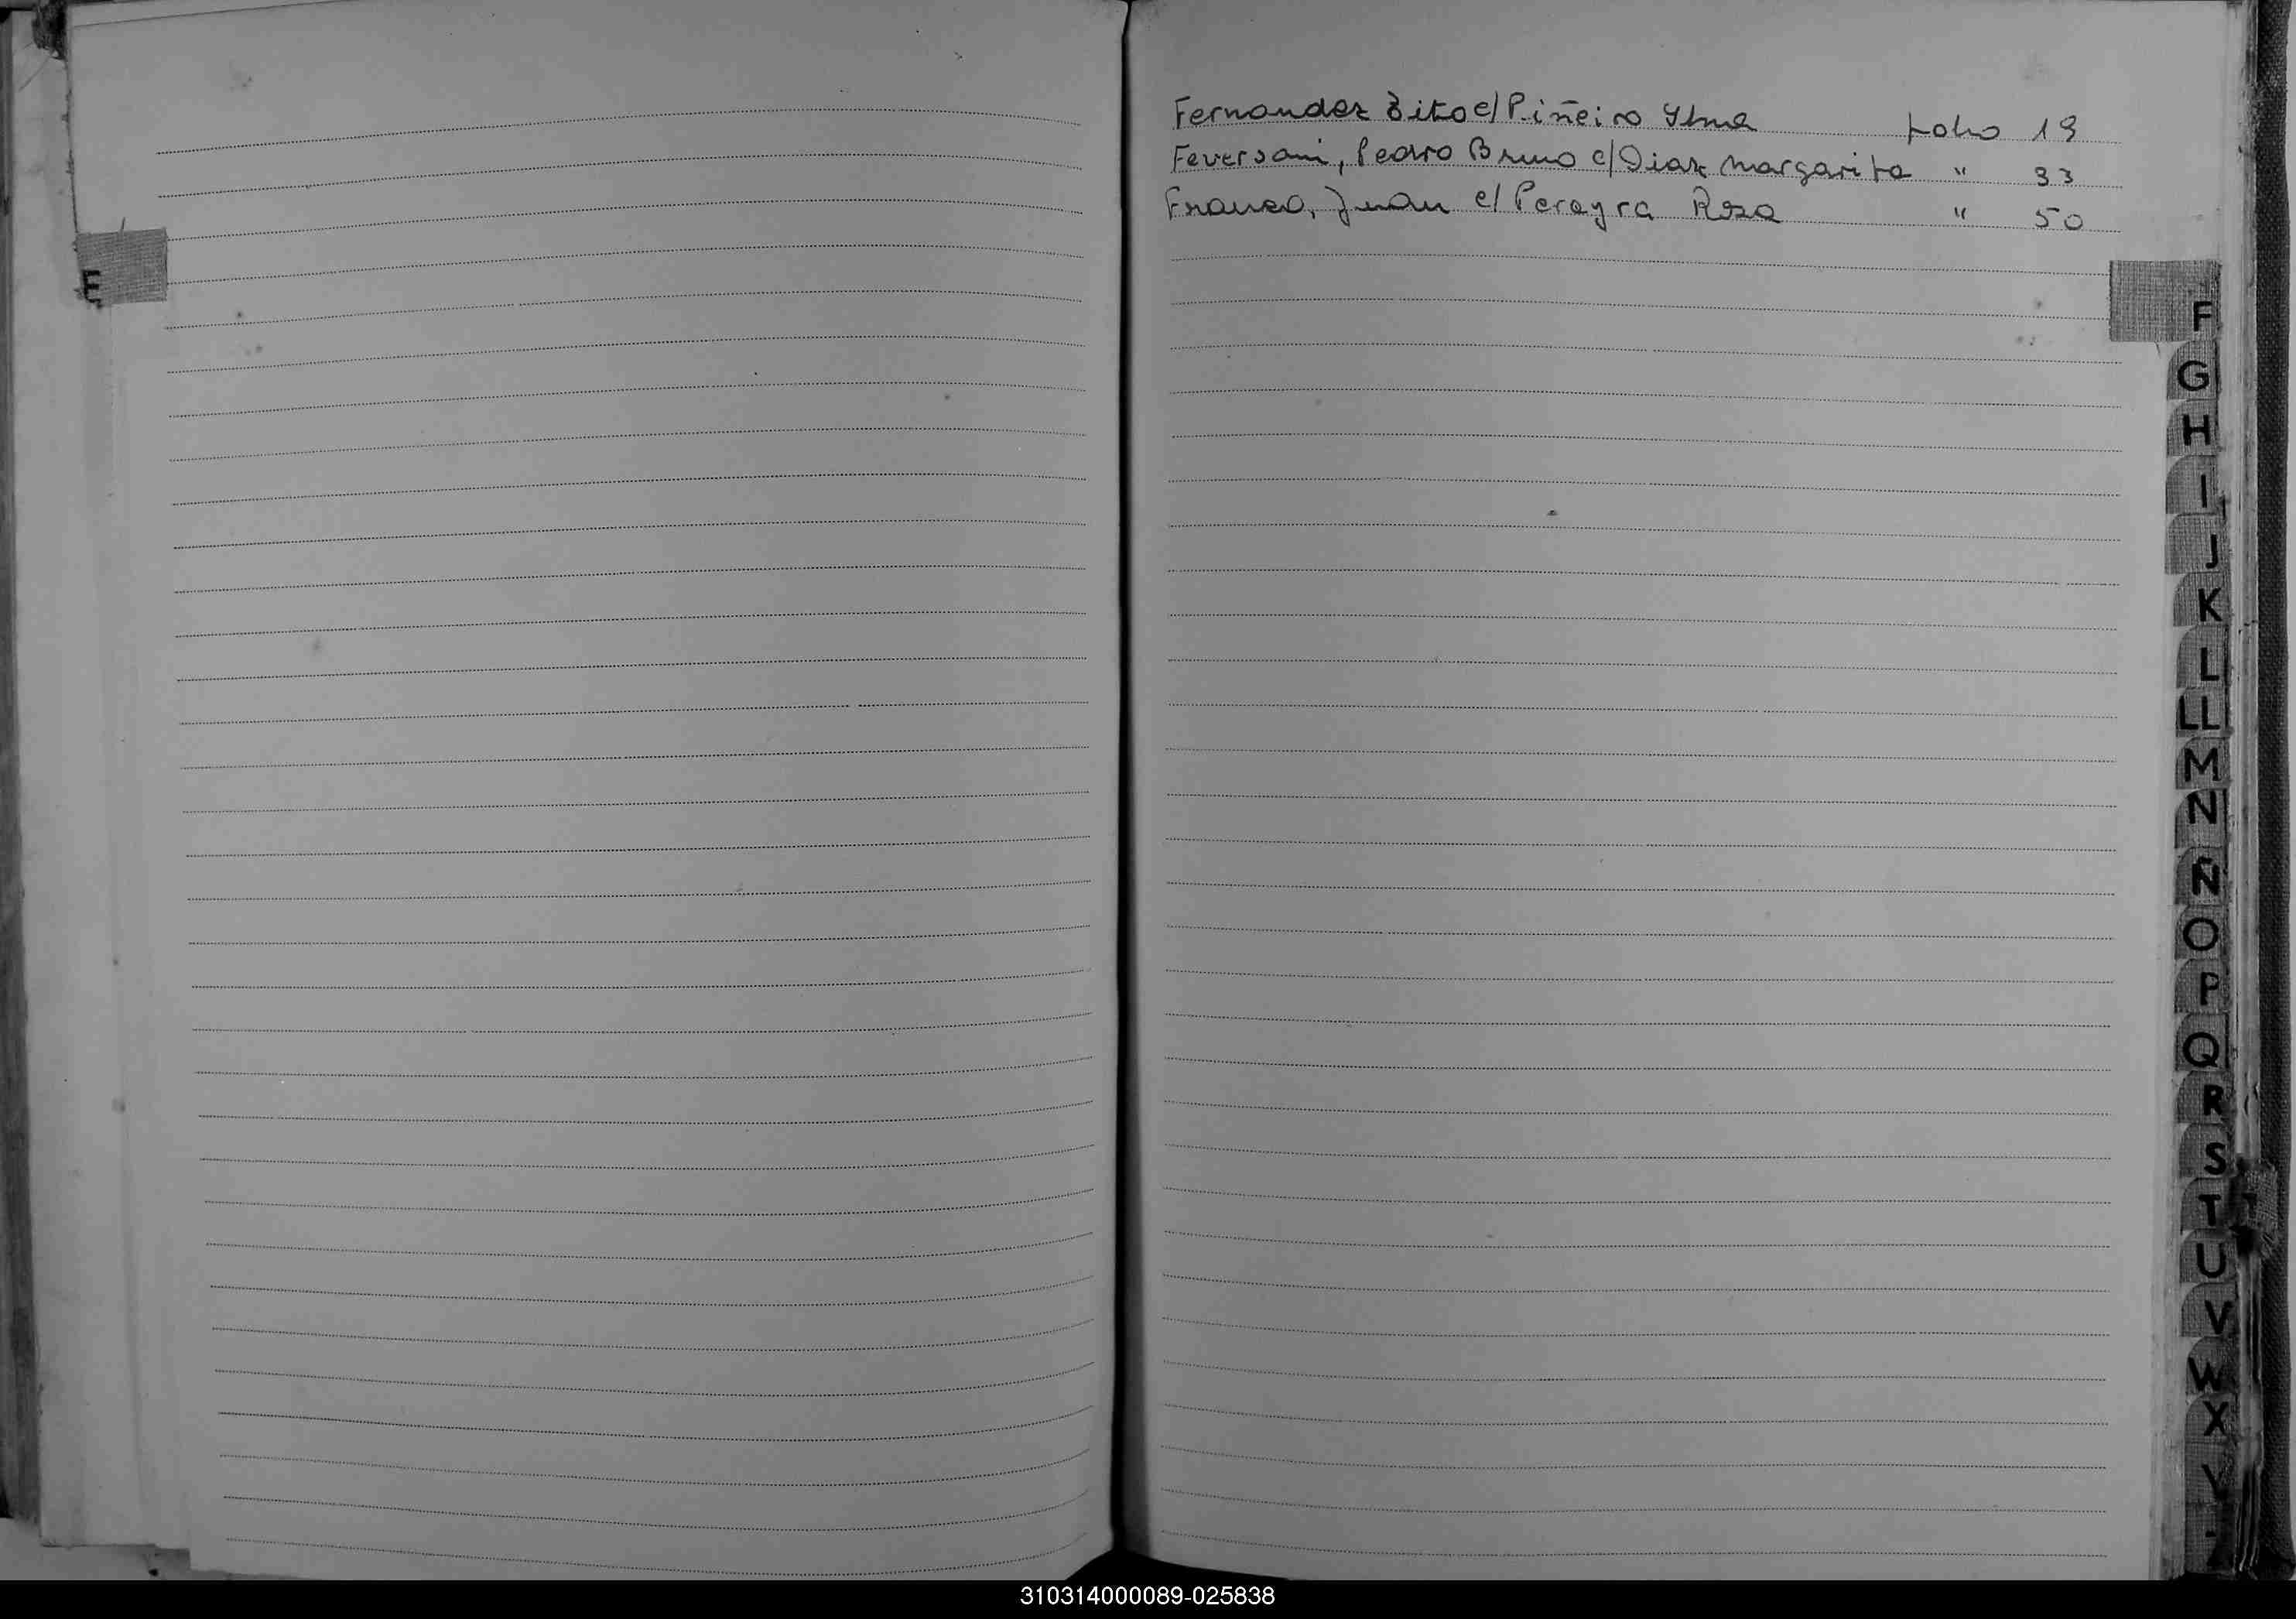 Fernandez Tito c/ Piñeiro Ilma Folio 19
Feversani, Pedro Bruno c/ Diaz Margarita " 33
Franco, Juan c/ Pereyra Rosa " 50
E
F
G
H
I
J
K
L
LL
M
N
Ñ
O
P
Q
R
S
T
U
V
W
X
310314000089-025838